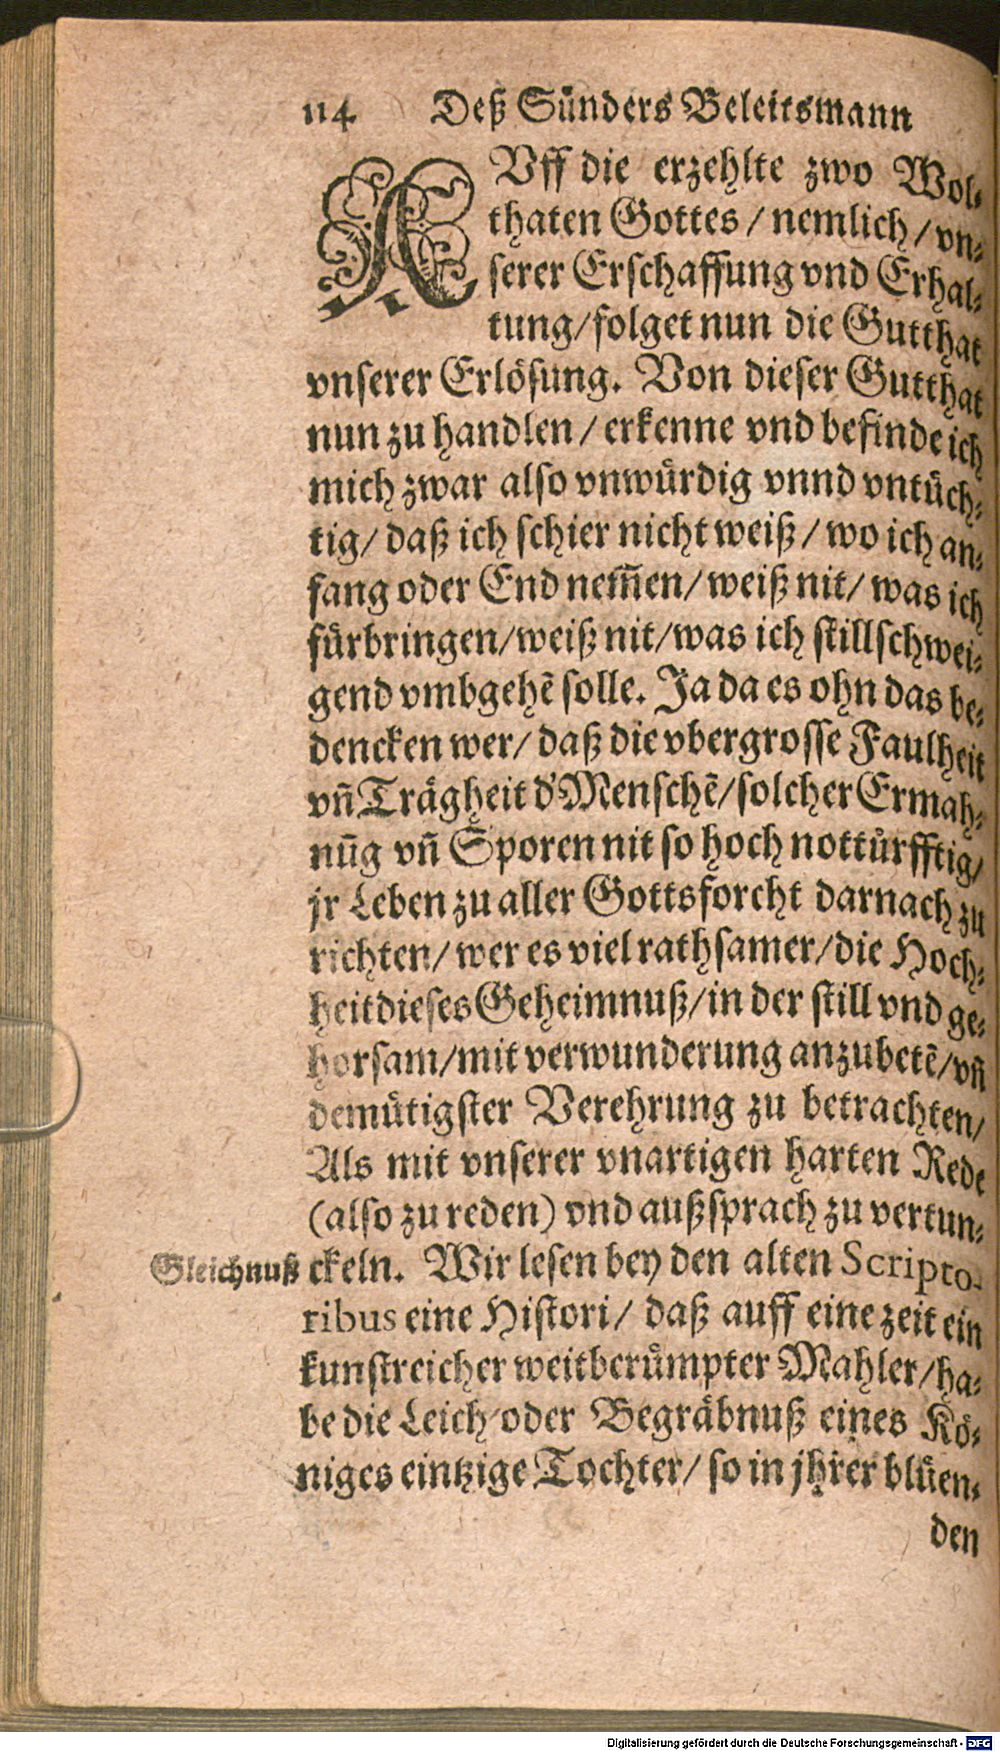 114 Deß Sünders Beleitsmann
AVff die erzehlte zwo Wol-
thaten Gottes / nemlich / vn-
serer Erschaffung vnd Erhal-
tung/folget nun die Gutthat
vnserer Erlösung. Von dieser Gutthat
nun zu handlen / erkenne vnd befinde ich
mich zwar also vnwürdig vnnd vntüch-
tig/ daß ich schier nicht weiß / wo ich an-
fang oder End nem̃en/ weiß nit/ was ich
fürbringen/weiß nit/was ich stillschwei-
gend vmbgehẽ solle. Ja da es ohn das be-
dencken wer/ daß die vbergrosse Faulheit
vñ Trägheit d' Menschẽ/solcher Ermah-
nũg vñ Sporen nit so hoch nottürfftig/
jr Leben zu aller Gottsforcht darnach zu
richten/ wer es viel rathsamer/die Hoch-
heit dieses Geheimnuß/in der still vnd ge-
horsam/mit verwunderung anzubetẽ/vñ
demütigster Verehrung zu betrachten/
Als mit vnserer vnartigen harten Rede
(also zu reden) vnd außsprach zu vertun-
Gleichnuß ckeln. Wir lesen bey den alten Scripto-
ribus eine Histori/ daß auff eine zeit ein
kunstreicher weitberümpter Mahler/ha-
be die Leich oder Begräbnuß eines Kö-
niges eintzige Tochter/ so in jhrer blüen-
den
Digitalisierung gefördert durch die Deutsche Forschungsgemeinschaft - DFG